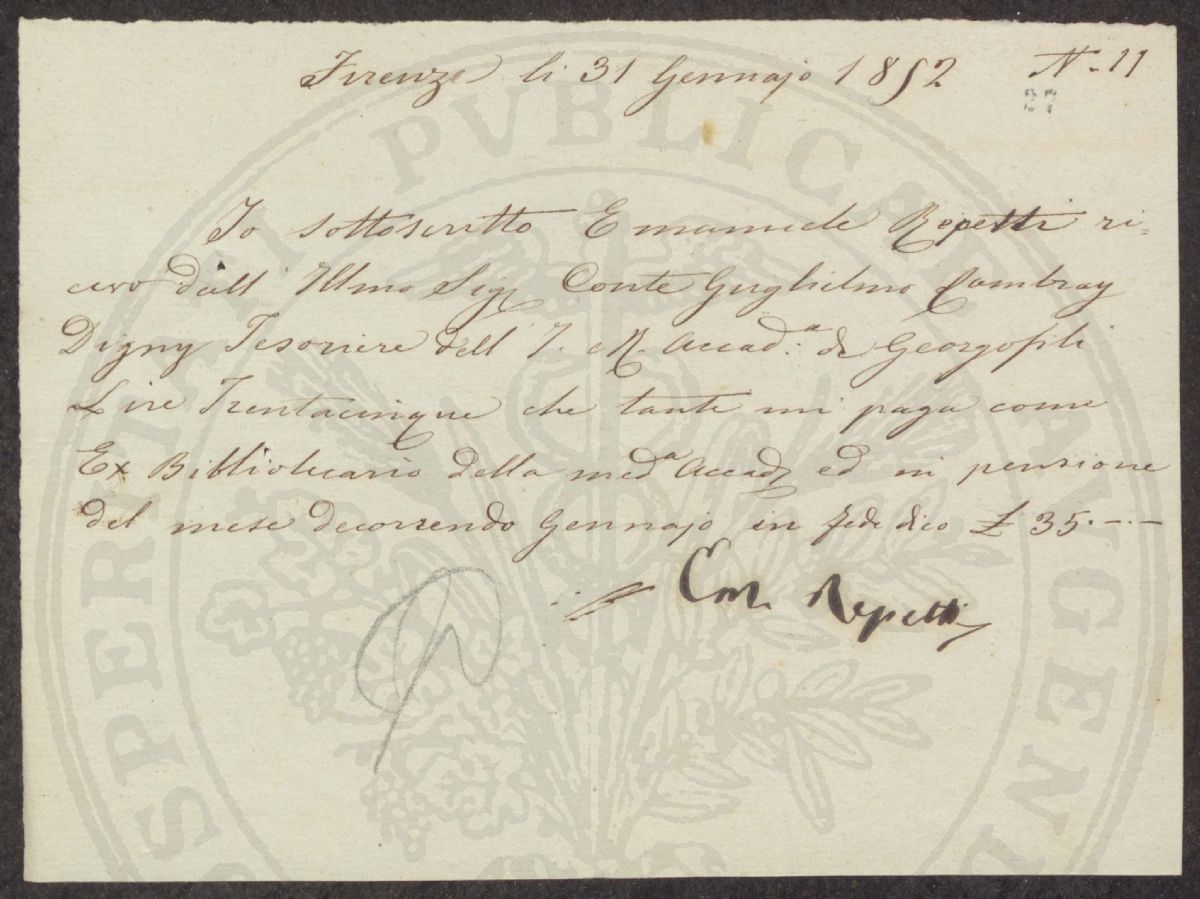 Firenze li 31 Gennajo 1852 N. 11
27
Io sottoscritto Emanuele Repetti ri=
cevo dall' Illmo Sigr Conte Guglielmo Cambray
Digny Tesoriere dell' I. e R. Accad.a de Georgofili
Lire Trentacinque che tante mi paga come
Ex Bibliotecario della meda Accada ed in pensione
del mese decorrendo Gennajo in fede dico £ 35.--
Em. Repetti
PROSPERITATI PVBLICAE AVGENDAE